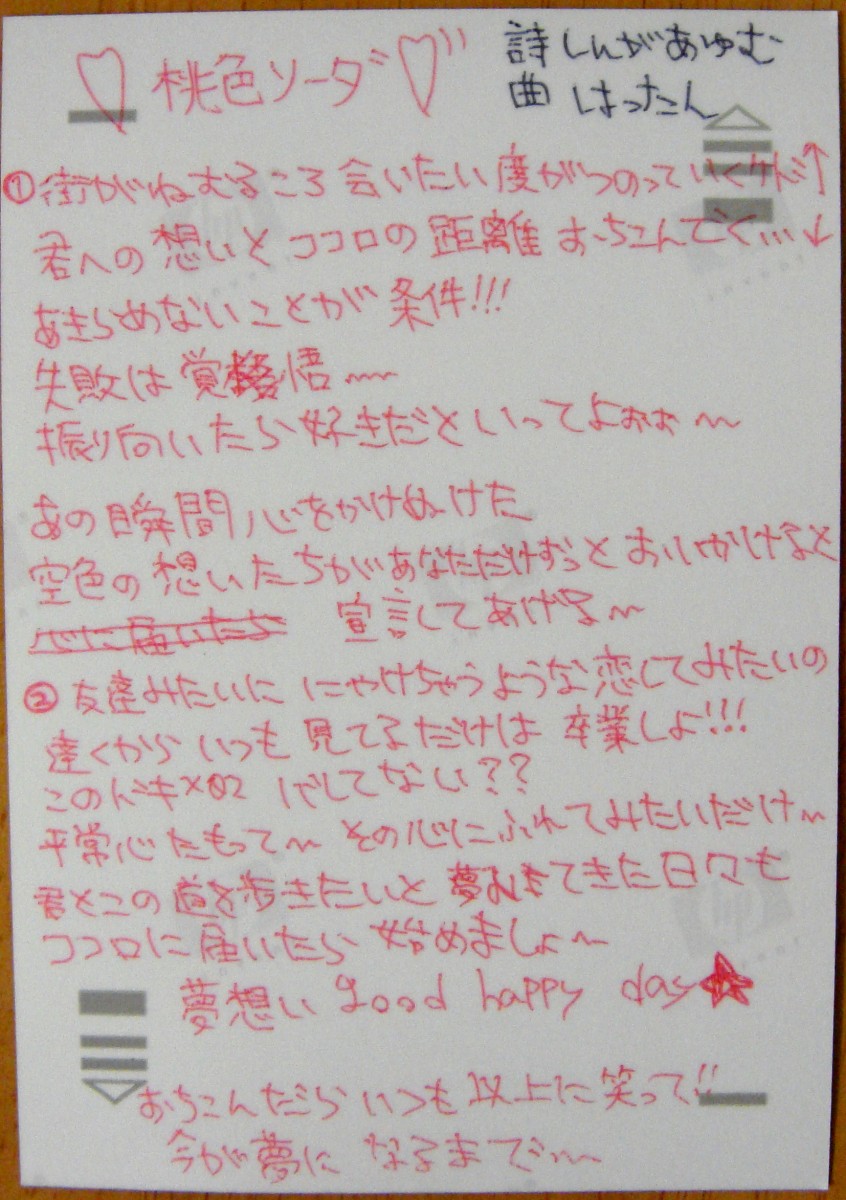 ♡桃色ソーダ♡
詩 しんがあゆむ
曲 はったん
①街がねむるころ 会いたい度がつのっていくケド↑
君への想いとココロの距離 おちこんでく…↓
あきらめないことが条件!!!
失敗は覚悟〜
振り向いたら好きだといってよぉぉ〜
あの瞬間心をかけぬけた
空色の想いたちがあなただけずっとおいかけると
心に届いたら 宣言してあげる〜
②友達みたいに にやけちゃうような恋してみたいの
遠くからいつも見てるだけは卒業しよ!!!
このドキ×02 バレてない??
平常心たもって〜 その心にふれてみたいだけ〜
君とこの道を歩きたいと 夢みてきた日々も
ココロに届いたら 始めましょ〜
夢想い good happy day★
おちこんだらいつも以上に笑って!!
今が夢に なるまで〜